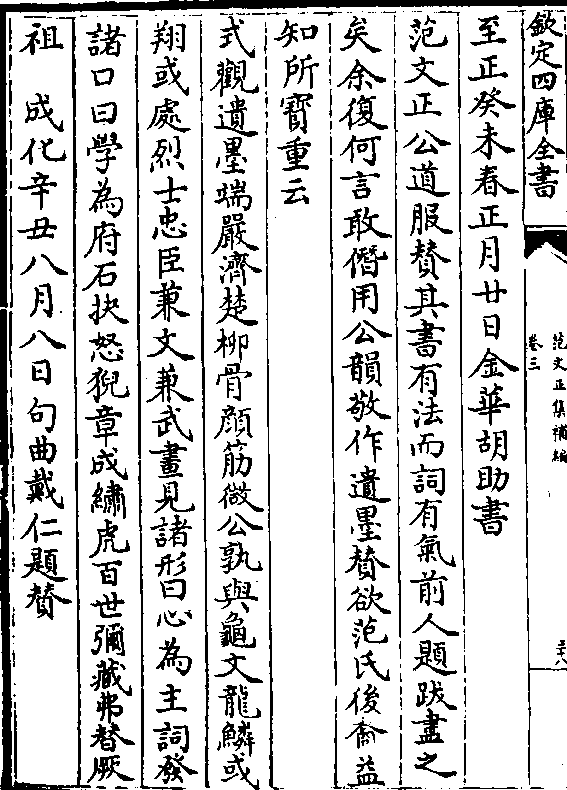 欽定四庫全書
范文正集補編
卷三
至正癸未春正月廿日金華胡助書
范文正公道服賛其書有法而詞有氣前人題跋盡之
矣余復何言敢僭用公韻敬作遺墨賛欲范氏後裔益
知所寳重云
式觀遺墨端嚴濟楚柳骨顔筋微公孰與龜文龍鱗或
翔或處烈士忠臣兼文兼武畫見諸形曰心為主詞發
諸口曰學為府石抉怒猊章成繡虎百世彌藏弗替厥
祖 成化辛丑八月八日句曲戴仁題賛